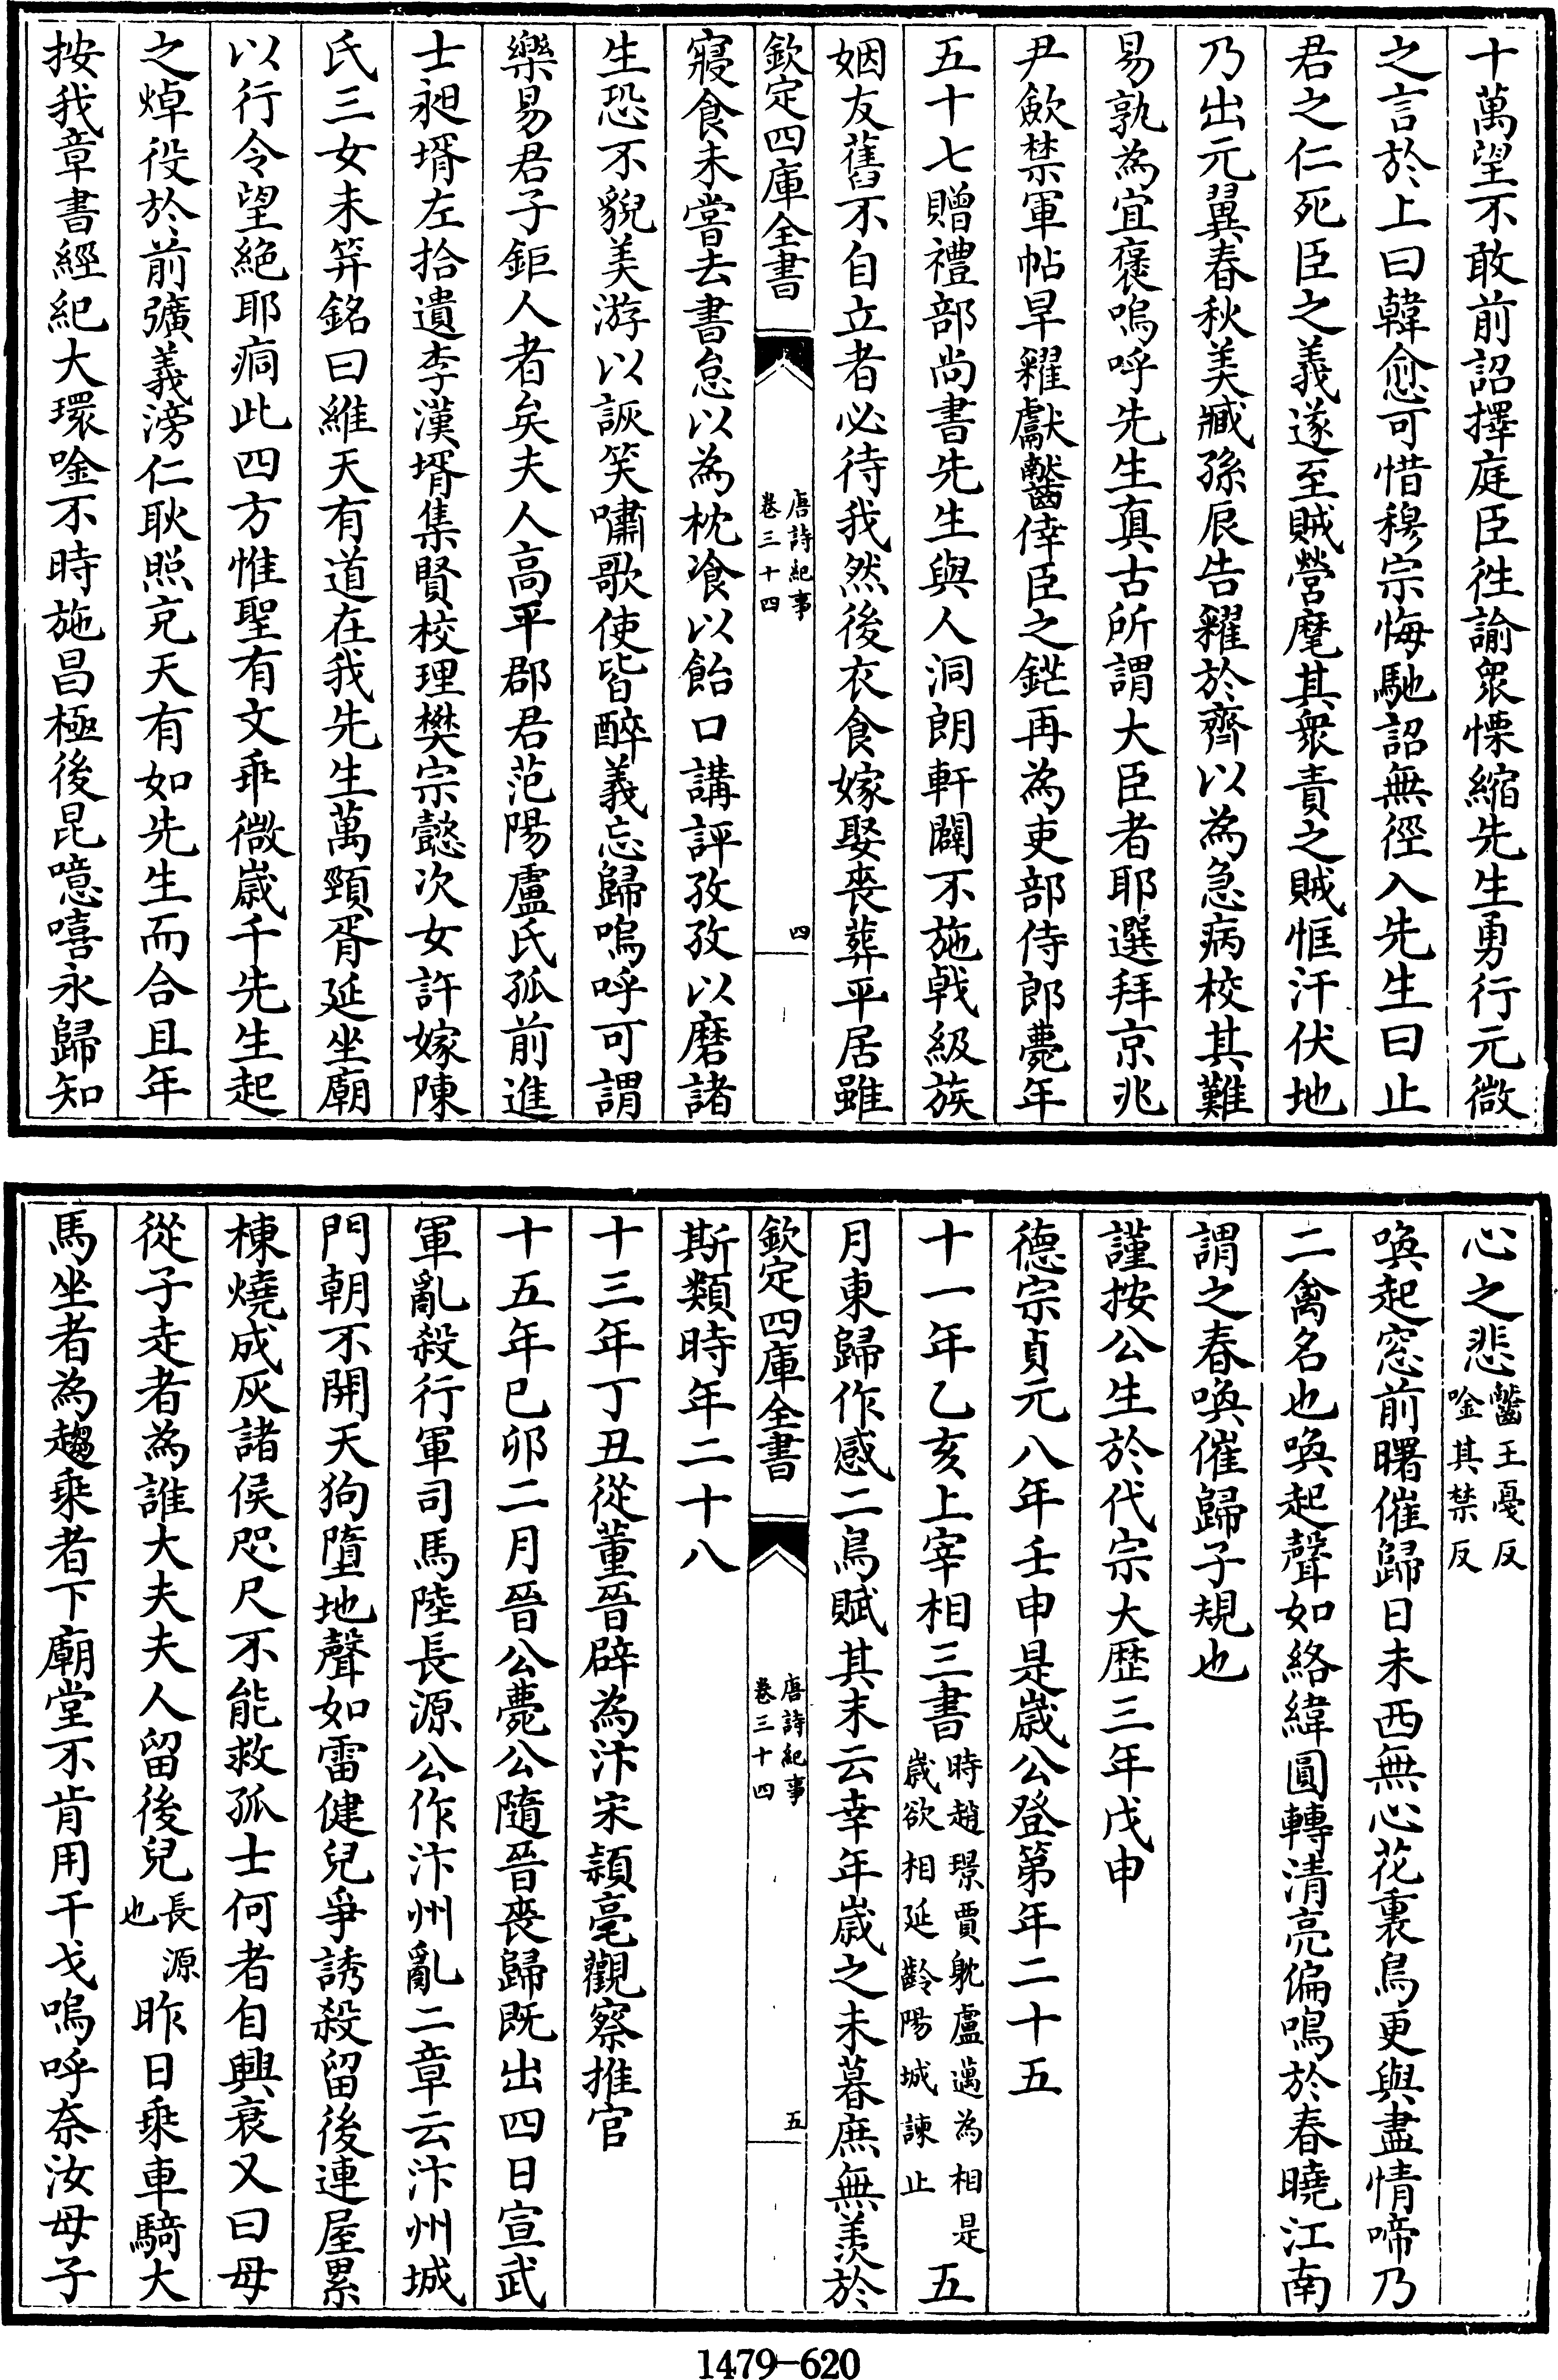 十萬望不敢前詔擇庭臣徃諭衆慄縮先生勇行元微
之言於上曰韓愈可惜穆宗悔馳詔無徑入先生曰止
君之仁死臣之義遂至賊營麾其衆責之賊恇汗伏地
乃出元翼春秋美臧孫辰告糴於齊以為急病校其難
易孰為宜褒嗚呼先生真古所謂大臣者耶選拜京兆
尹歛禁軍帖旱糴齾倖臣之鋩再為吏部侍郎薨年
五十七贈禮部尚書先生與人洞朗軒闢不施戟級族
姻友舊不自立者必待我然後衣食嫁娶喪葬平居雖
欽定四庫全書
唐詩紀事
卷三十四
四
寢食未嘗去書怠以為枕飡以飴口講評孜孜以磨諸
生恐不貌美游以詼笑嘯歌使皆醉義忘歸嗚呼可謂
樂易君子鉅人者矣夫人高平郡君范陽盧氏孤前進
士昶壻左拾遺李漢壻集賢校理樊宗懿次女許嫁陳
氏三女未笄銘曰維天有道在我先生萬頸胥延坐廟
以行令望絶耶痌此四方惟聖有文乖微歲千先生起
之焯役於前彍義滂仁耿照充天有如先生而合且年
按我章書經紀大環唫不時施昌極後昆噫嘻永歸知
心之悲
齾王戞反
唫其禁反
喚起窓前曙催歸日未西無心花裏鳥更與盡情啼乃
二禽名也喚起聲如絡緯圓轉清亮偏鳴於春曉江南
謂之春喚催歸子規也
謹按公生於代宗大歴三年戊申
德宗貞元八年壬申是歲公登第年二十五
十一年乙亥上宰相三書
時趙璟賈躭盧邁為相是
歲欲相延齡陽城諫止
五
月東歸作感二鳥賦其末云幸年歲之未暮庶無羨於
欽定四庫全書
唐詩紀事
卷三十四
五
斯類時年二十八
十三年丁丑從董晉辟為汴宋頴亳觀察推官
十五年已卯二月晉公薨公隨晉喪歸既出四日宣武
軍亂殺行軍司馬陸長源公作汴州亂二章云汴州城
門朝不開天狗墮地聲如雷健兒爭誘殺留後連屋累
棟燒成灰諸侯咫尺不能救孤士何者自興衰又曰母
從子走者為誰大夫夫人留後兒
長源
也
昨日乘車騎大
馬坐者為趨乘者下廟堂不肯用干戈嗚呼奈汝母子
1479-620